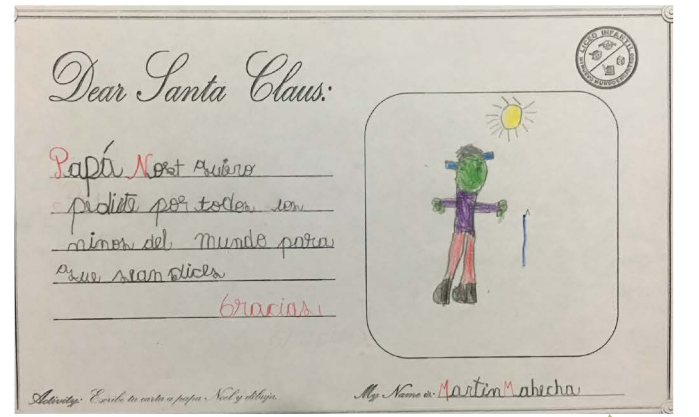 LICEO INFANTIL
Dear Santa Claus:
Papá Noet quiero
pedirte por todos los
ninos del mundo para
que sean felices
Gracias!
Activity: Escribe tu carta a papa Noel y dibuja.
My Name is: Martin Mahecha